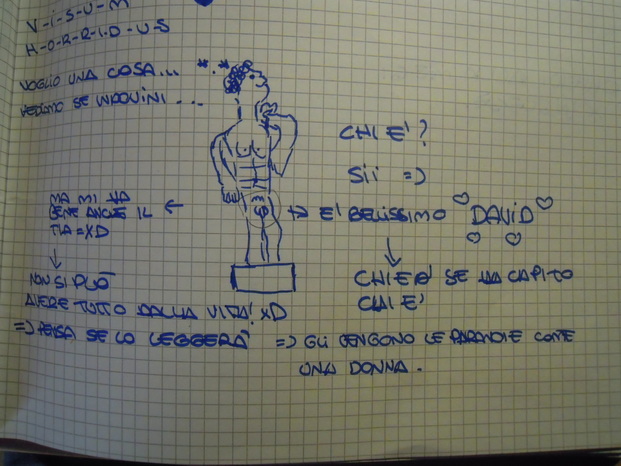 V-I-S-U-M
H-O-R-R-I-D-U-S
VOGLIO UNA COSA... *.*
VEDIAMO SE INDOVINI ...
CHI E'?
SII =)
MA MI VA
BENE ANCHE IL
TIA =XD
E' BELISSIMO DAVID
NON SI PUÒ
AVERE TUTTO DALLA VITA! XD
CHIEDI SE HA CAPITO
CHI E'
=> PENSA SE LO LEGGERÀ
=> GLI VENGONO LE PARANOIE COME
UNA DONNA.